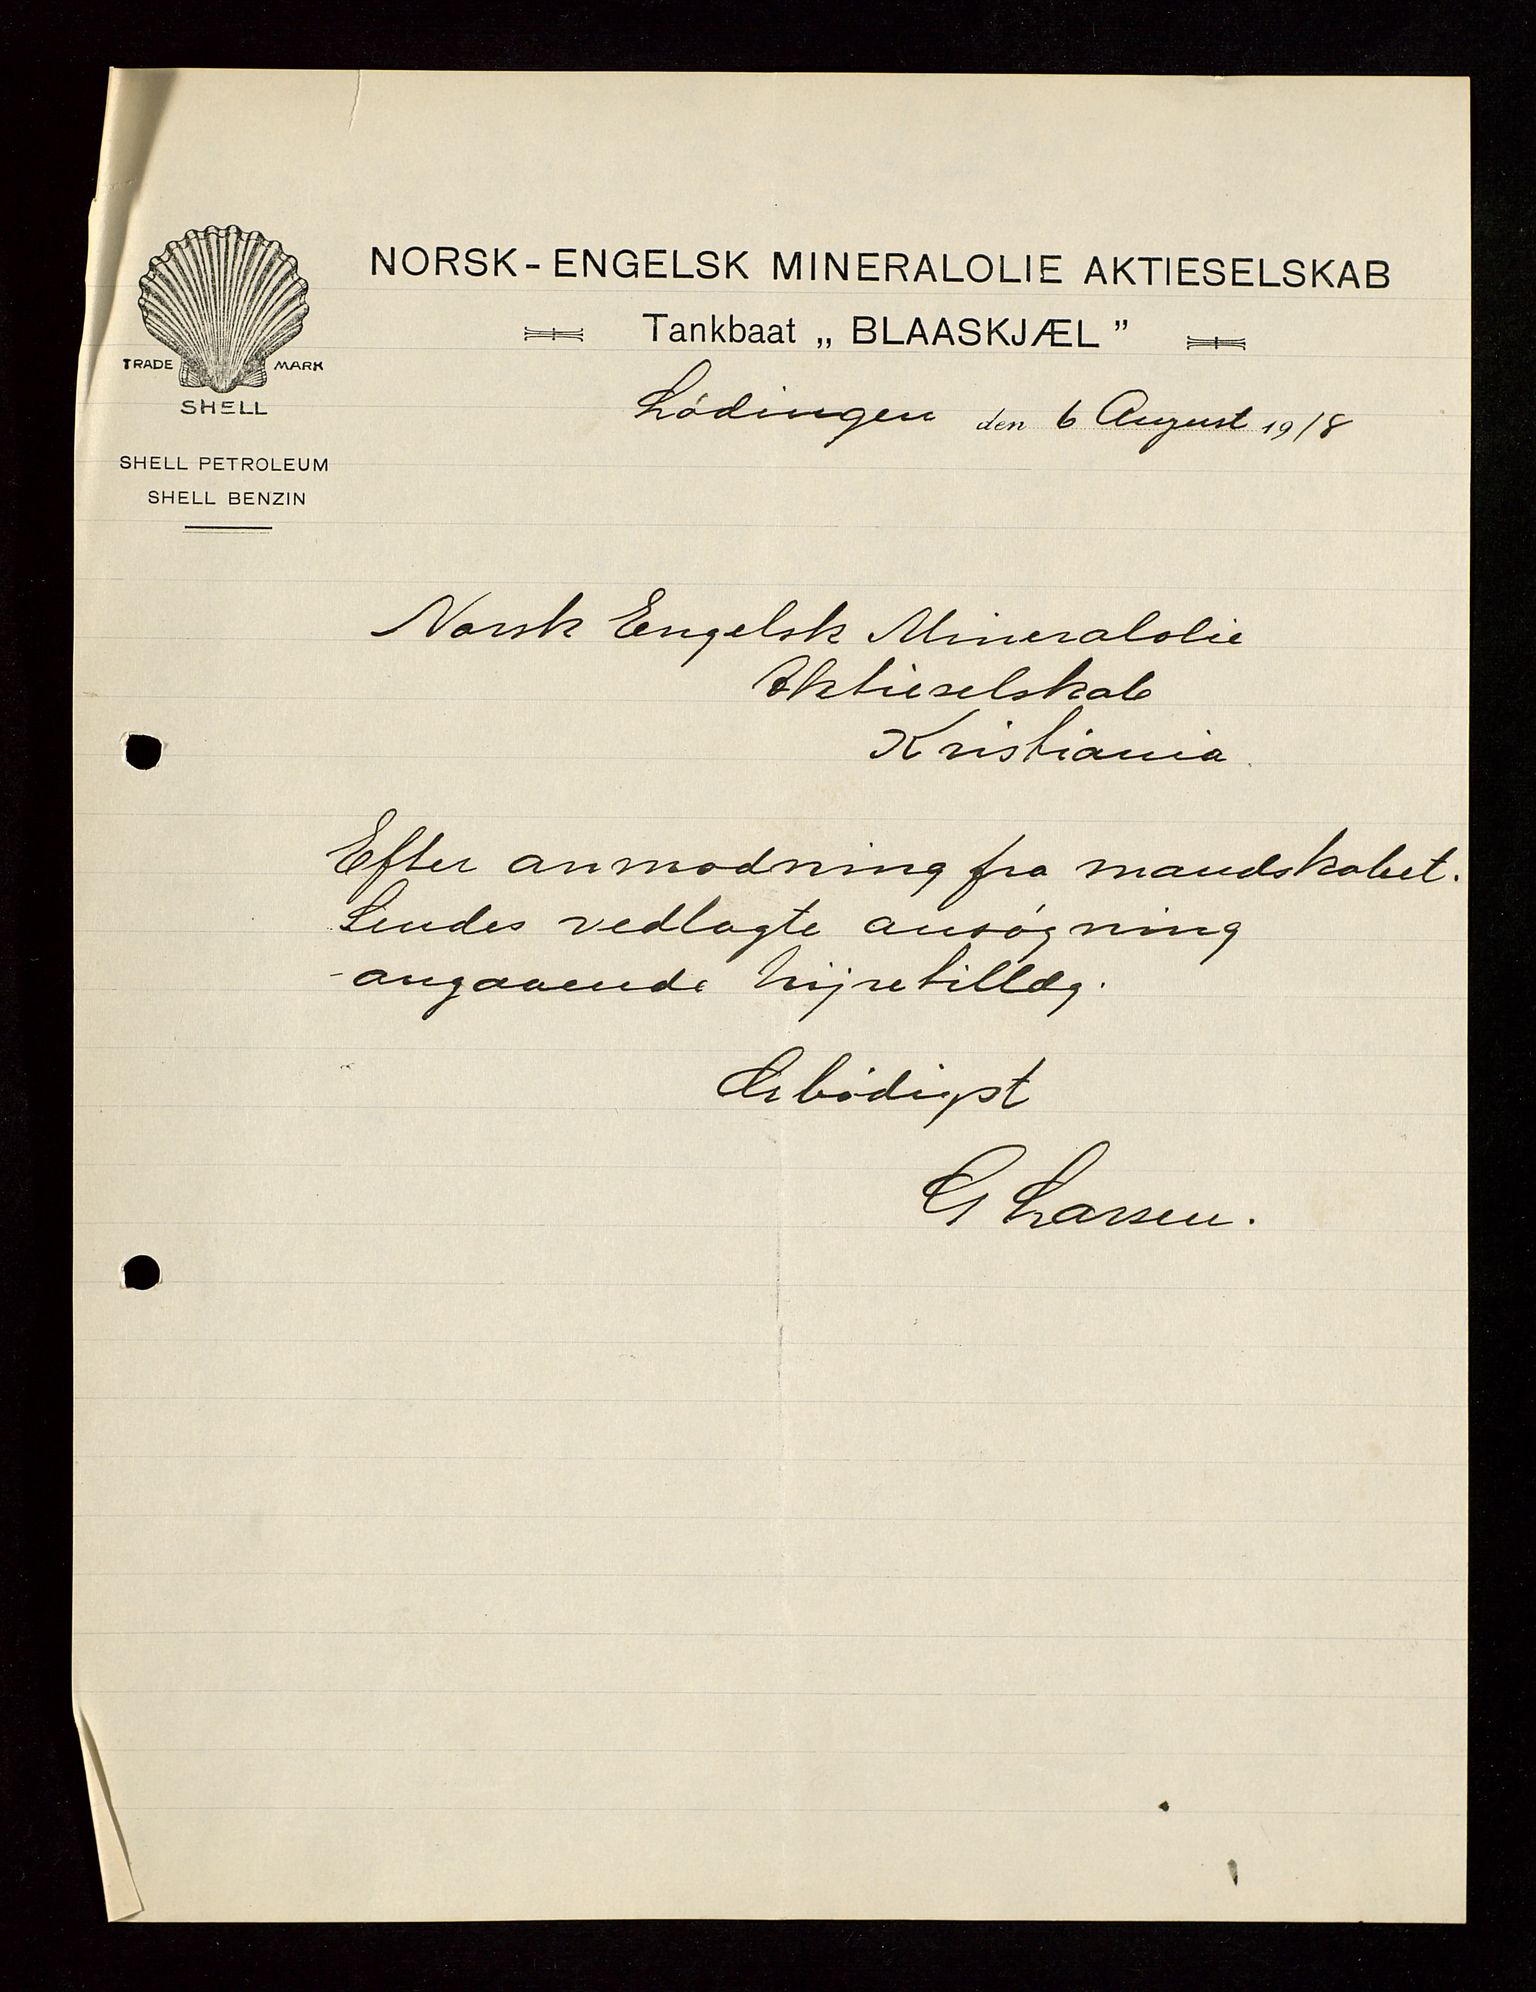 NORSK-ENGELSK MINERALOLIE AKTIESELSKAB
Tankbaat „BLAASKJÆL”
TRADE MARK
SHELL
SHELL PETROLEUM
SHELL BENZIN
Lödingen den 6 August 1918
Norsk Engelsk Mineralolie
Aktieselskab
Kristiania.
Efter anmodning fra mandskabet.
Sendes vedlagte ansøgning
angaaende hyretillæg.
Ærbödigst
G Larsen.